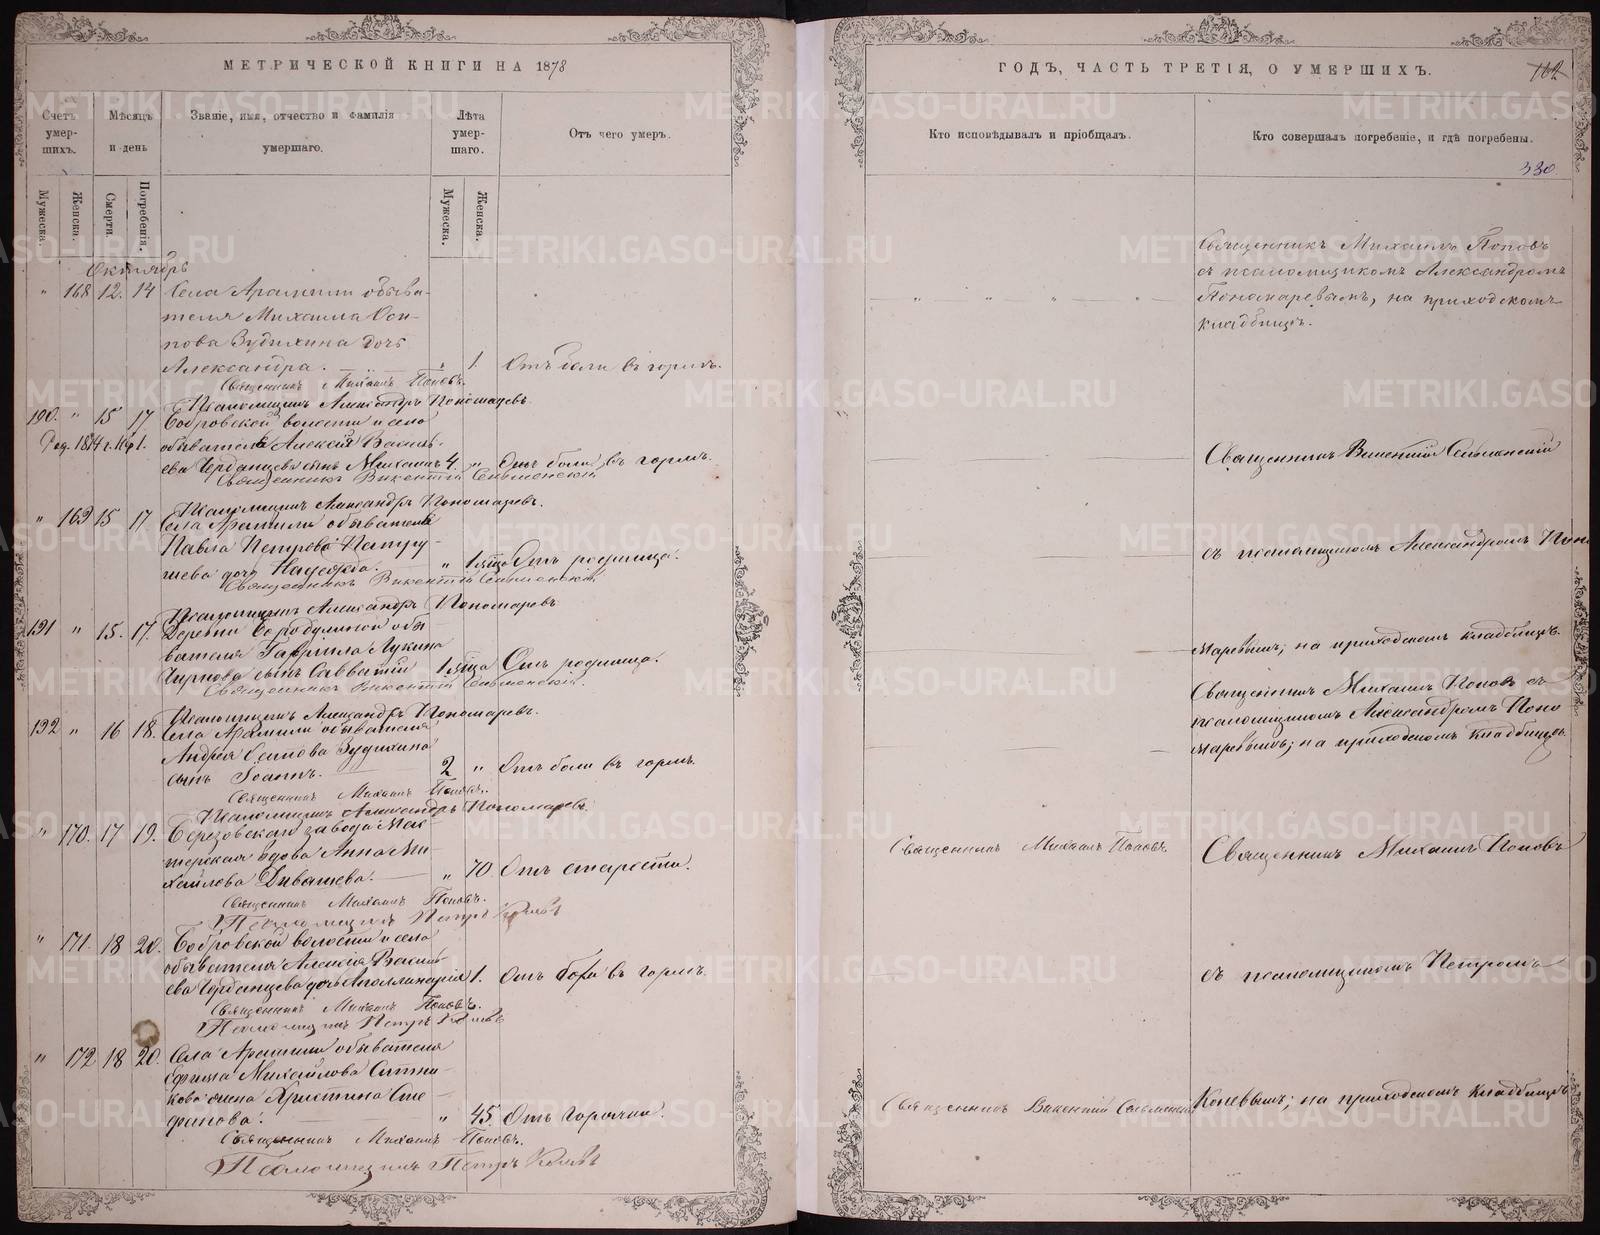 МЕТРИЧЕСКОЙ КНИГИ НА 1878
Счетъ умер-шихъ.
Мѣсяцъ и день
Званіе, имя, отчество и фамилія умершаго.
Лѣта умер-шаго.
Отъ чего умеръ.
Мужеска.
Женска.
Смерти.
Погребенія.
Мужеска.
Женска.
Октябрь
" 168 12. 14 Села Арамили обыва-
теля Михаила Оси-
пова Зудихина дочь
Александра. " 1. Отъ боли въ горлѣ.
Священникъ Михаилъ Поповъ.
Псаломщикъ Александръ Пономаревъ
190. " 15 17 Бобровской волости и села
Род. 1874 г.
обывателя Алексія Василь-
ева Черданцева сынъ Михаилъ 4. " Отъ боли въ горлѣ.
Священникъ Викентій Сельменскій
Псаломщикъ Александръ Пономаревъ.
" 169 15 17 Села Арамили обывателя
Павла Петрова Патру-
шева дочь Надежда. " 1 мца Отъ родимца.
Священникъ Викентій Сельменскій
Псаломщикъ Александръ Пономаревъ
191 " 15. 17. Деревни Бородулиной обы-
вателя Гавріила Лукина
Чиркова сынъ Савватій 1 мца Отъ родимца.
Священникъ Викентій Сельменскій.
Псаломщикъ Александръ Пономаревъ.
192 " 16 18. Села Арамили обывателя
Андрея Осипова Зудихина
сынъ Іоаннъ. 2 " Отъ боли въ горлѣ.
Священникъ Михаилъ Поповъ.
Псаломщикъ Александръ Пономаревъ.
" 170. 17 19. Березовскаго завода мас-
терская вдова Анна Ми-
хайлова Дивашева. " 70. Отъ старости.
Священникъ Михаилъ Поповъ.
Псаломщикъ Петръ
" 171. 18 20. Бобровской волости и села
обывателя Алексія Василь-
ева Черданцева дочь Аполлинарія 1. Отъ боли въ горлѣ.
Священникъ Михаилъ Поповъ.
Псаломщикъ Петръ
" 172 18 20. Села Арамили обывателя
Ефима Михайлова Ситни-
кова жена Христина Сте-
фанова. " 45. Отъ горячки.
Священникъ Михаилъ Поповъ.
Псаломщикъ Петръ
ГОДЪ, ЧАСТЬ ТРЕТІЯ, О УМЕРШИХЪ.
162
Кто исповѣдывалъ и пріобщалъ.
Кто совершалъ погребеніе, и гдѣ погребены.
330
Священникъ Михаилъ Поповъ
съ псаломщикомъ Александромъ
Пономаревымъ, на приходскомъ
кладбищѣ.
Священникъ Викентій Сельменскій
съ псаломщикомъ Александромъ Поно
маревымъ; на приходскомъ кладбищѣ.
Священникъ Михаилъ Поповъ съ
псаломщикомъ Александромъ Поно
маревымъ; на приходскомъ кладбищѣ.
Священникъ Михаилъ Поповъ. Священникъ Михаилъ Поповъ
съ псаломщикомъ Петромъ
Священникъ Викентій Сельменскій
на приходскомъ кладбищѣ
METRIKI.GASO-URAL.RU